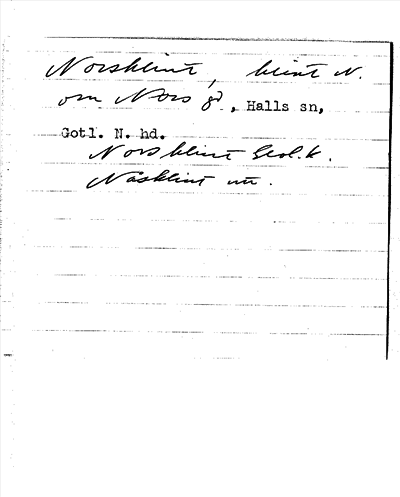 Norsklint, klint N.
om Nors gd, Halls sn,
Gotl. N. hd.
Norsklint Geol.k.
Nasklint utt.